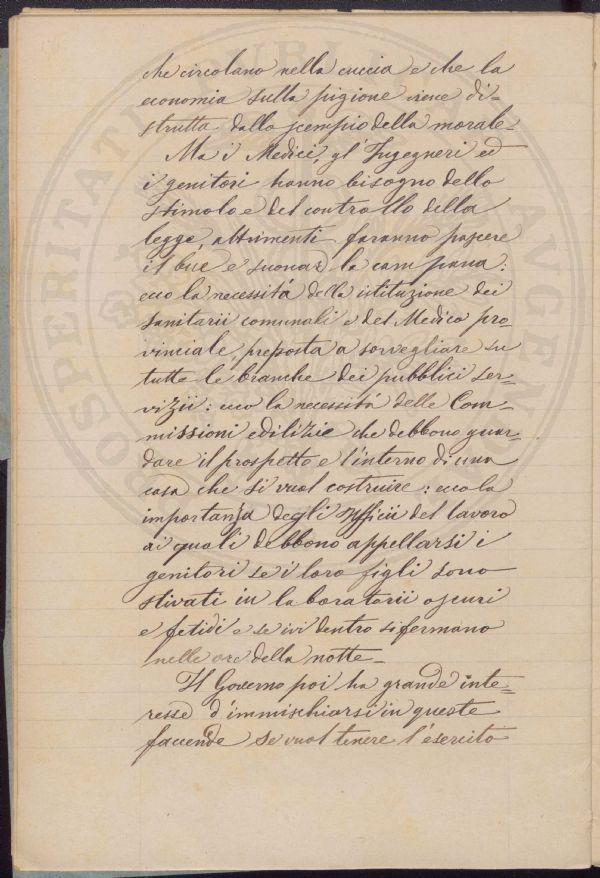 che circolano nella cuccia e che la
economia sulla pigione viene di-
strutta dallo scempio della morale.
Ma i Medici, gl'Ingegneri ed
i genitori hanno bisogno dello
stimolo e del controllo della
legge, altrimenti faranno pascere
il bue e suonar la campana:
ecco la necessitá della istituzione dei
sanitarii comunali e del Medico pro-
vinciale, preposta a sorvegliare su
tutte le branche dei pubblici ser-
vizii: ecco la necessitá delle Com-
missioni edilizie che debbono guar-
dare il prospetto e l'interno di una
casa che si vuol costruire: ecco la
importanza degli ufficii del lavoro
ai quali debbono appellarsi i
genitori se i loro figli sono
stivati in laboratorii oscuri
e fetidi e se ivi dentro si fermano
nelle ore della notte.
Il Governo poi ha grande inte-
resse d'immischiarsi in queste
faccende se vuol tenere l'esercito
PROSPERITATI PUBLICAE AUGENDAE